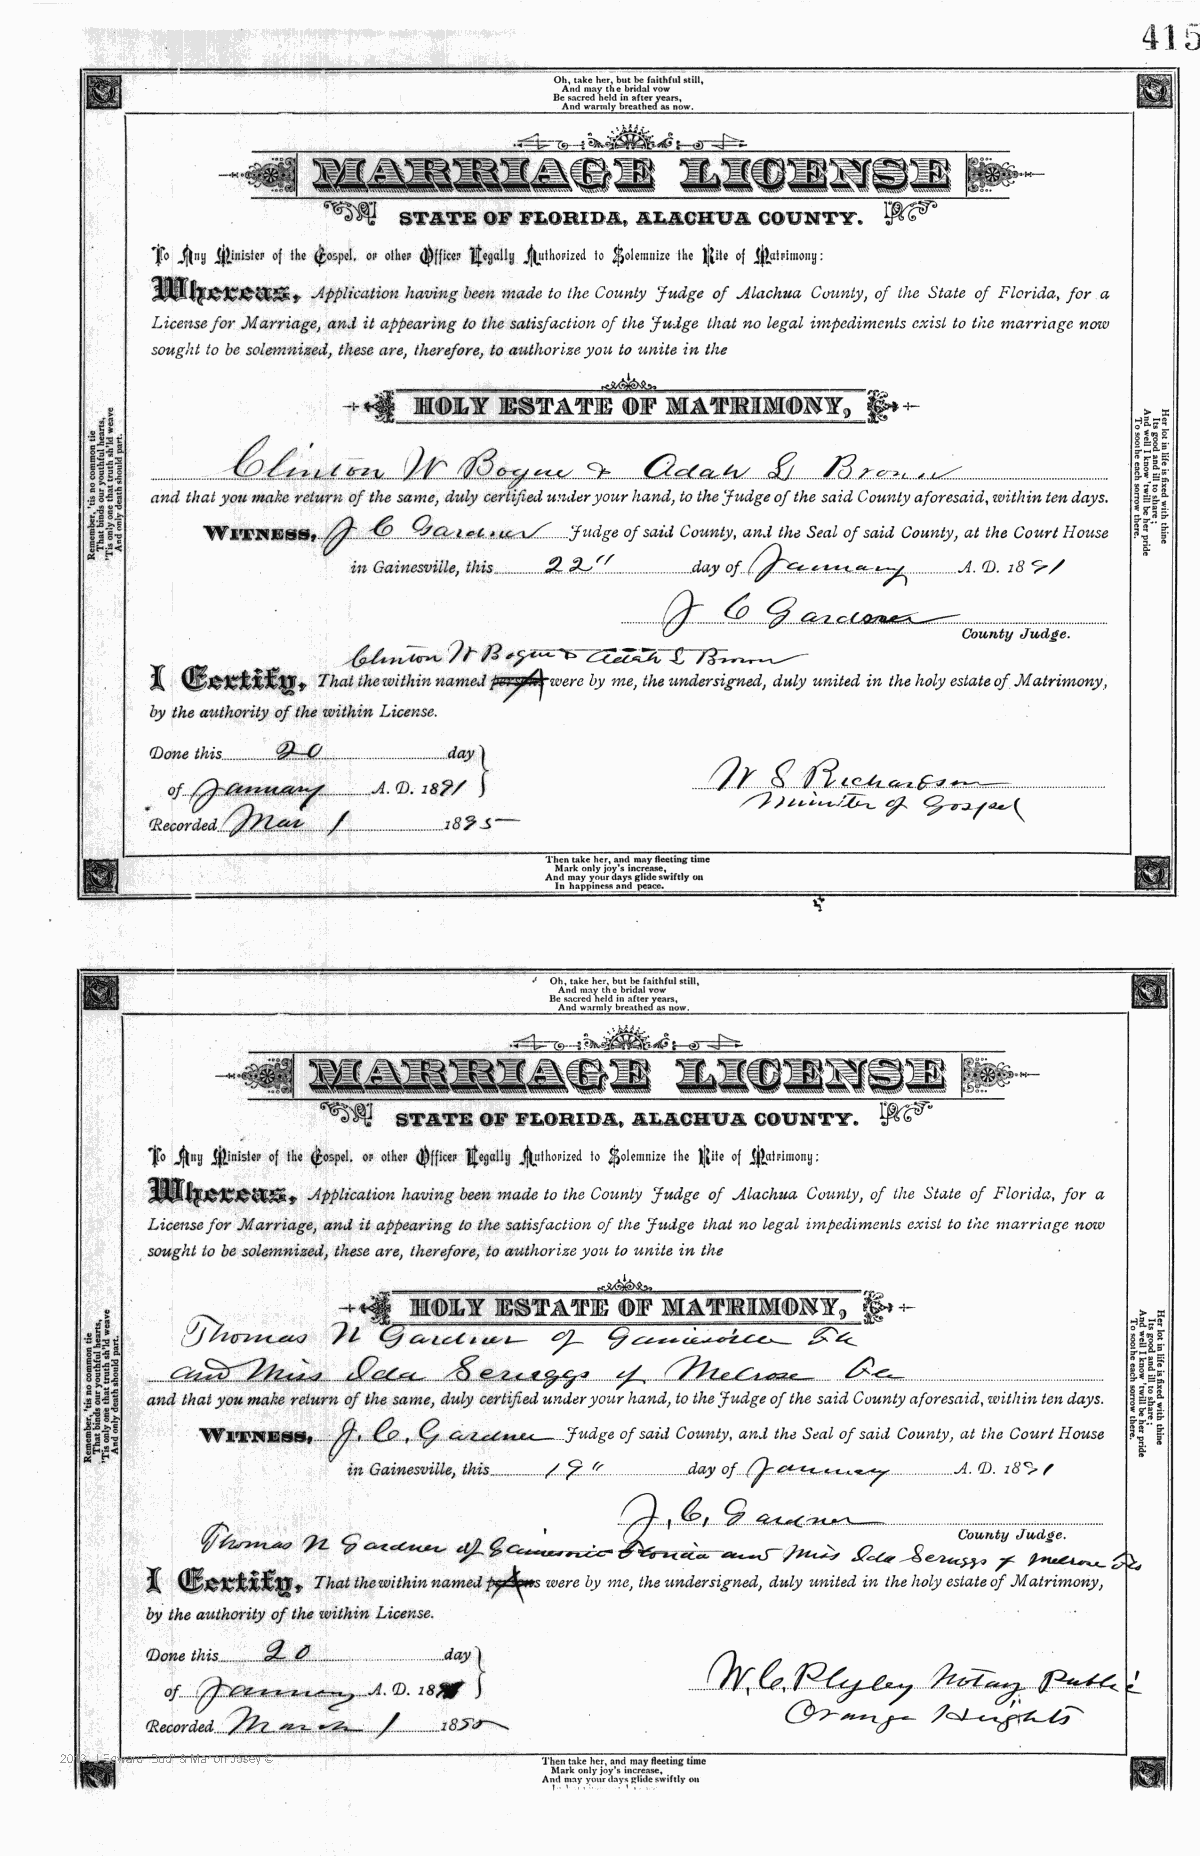 415
Oh, take her, but be faithful still,
And may the bridal vow
Be sacred held in after years,
And warmly breathed as now.
MARRIAGE LICENSE
STATE OF FLORIDA, ALACHUA COUNTY.
To Any Minister of the Gospel, or other Officer Legally Authorized to Solemnize the Rite of Matrimony:
Whereas, Application having been made to the County Judge of Alachua County, of the State of Florida, for a
License for Marriage, and it appearing to the satisfaction of the Judge that no legal impediments exist to the marriage now
sought to be solemnized, these are, therefore, to authorize you to unite in the
HOLY ESTATE OF MATRIMONY,
Clinton W Bogue & Adah L Brown
and that you make return of the same, duly certified under your hand, to the Judge of the said County aforesaid, within ten days.
WITNESS, J C Gardner Judge of said County, and the Seal of said County, at the Court House
in Gainesville, this 22" day of January A. D. 1891
J C Gardner
County Judge.
Clinton W Bogue & Adah L Brown
I Certify, That the within named persons were by me, the undersigned, duly united in the holy estate of Matrimony,
by the authority of the within License.
Done this 20 day
of January A. D. 1891
Recorded Mar 1 1895
W S Richardson
Minister of Gospel
Remember, 'tis no common tie
That binds our youthful hearts,
'Tis only one that truth sh'ld weave
And only death should part.
Her lot in life is fixed with thine
Its good and ill to share;
And well I know 'twill be her pride
To soothe each sorrow there.
Then take her, and may fleeting time
Mark only joy's increase,
And may your days glide swiftly on
In happiness and peace.
Oh, take her, but be faithful still,
And may the bridal vow
Be sacred held in after years,
And warmly breathed as now.
MARRIAGE LICENSE
STATE OF FLORIDA, ALACHUA COUNTY.
To Any Minister of the Gospel, or other Officer Legally Authorized to Solemnize the Rite of Matrimony:
Whereas, Application having been made to the County Judge of Alachua County, of the State of Florida, for a
License for Marriage, and it appearing to the satisfaction of the Judge that no legal impediments exist to the marriage now
sought to be solemnized, these are, therefore, to authorize you to unite in the
HOLY ESTATE OF MATRIMONY,
Thomas N Gardner of Gainesville Fla
and Miss Ida Scruggs of Melrose Fla
and that you make return of the same, duly certified under your hand, to the Judge of the said County aforesaid, within ten days.
WITNESS, J. C. Gardner Judge of said County, and the Seal of said County, at the Court House
in Gainesville, this 19" day of January A. D. 1891
J. C. Gardner
County Judge.
Thomas N Gardner of Gainesville Florida and Miss Ida Scruggs of Melrose Fla
I Certify, That the within named persons were by me, the undersigned, duly united in the holy estate of Matrimony,
by the authority of the within License.
Done this 20 day
of January A. D. 18
Recorded March 1 1895
W. C. Plyley Notary Public
Orange Heights
Remember, 'tis no common tie
That binds our youthful hearts,
'Tis only one that truth sh'ld weave
And only death should part.
Her lot in life is fixed with thine
Its good and ill to share;
And well I know 'twill be her pride
To soothe each sorrow there.
Then take her, and may fleeting time
Mark only joy's increase,
And may your days glide swiftly on
Edward "Bud" & Marion Josey ©